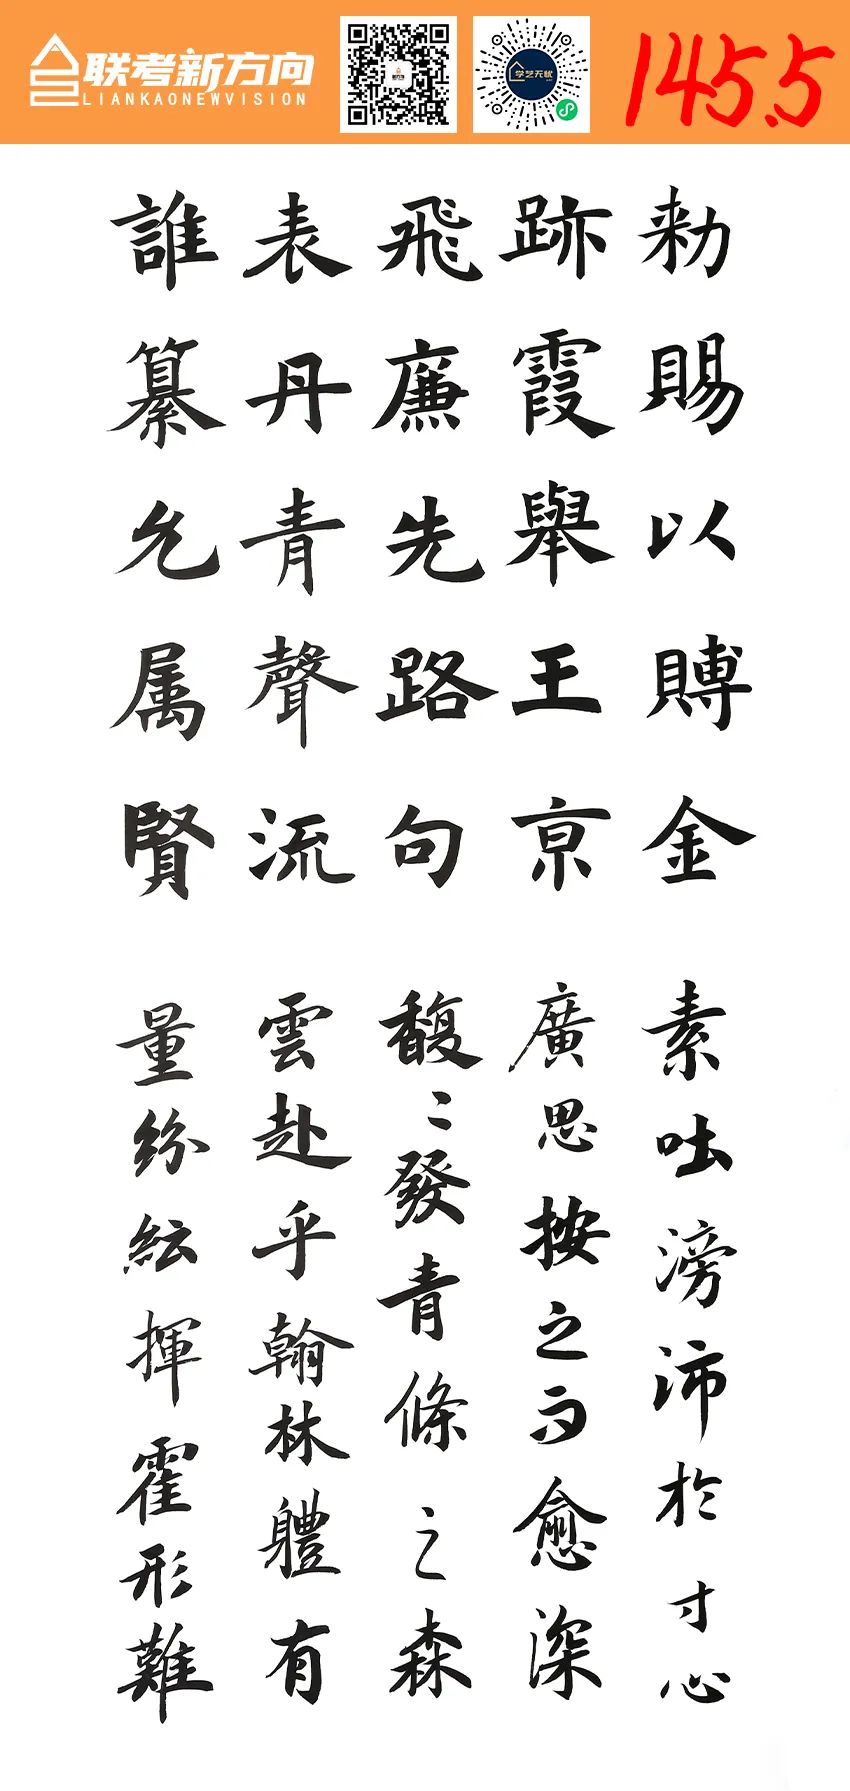 联考新方向
LIANKAONEWVISION
学艺无忧
145.5
勑賜以賻金
跡霞舉王亰
飛廉先路句
表丹青聲流
誰纂允属賢
素吐滂沛於寸心
廣思按之而愈深
馥〻發青條之森
雲赴乎翰林體有
量紛紜揮霍形難